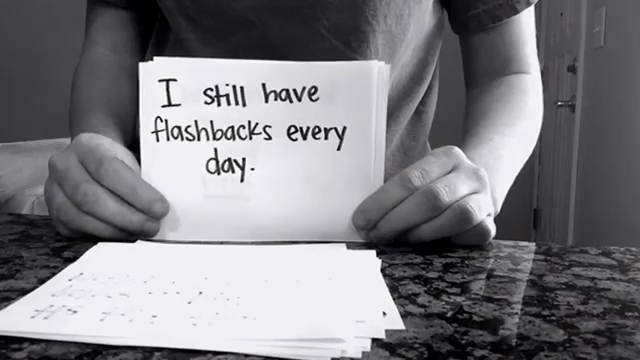 I still have
flashbacks every
day.